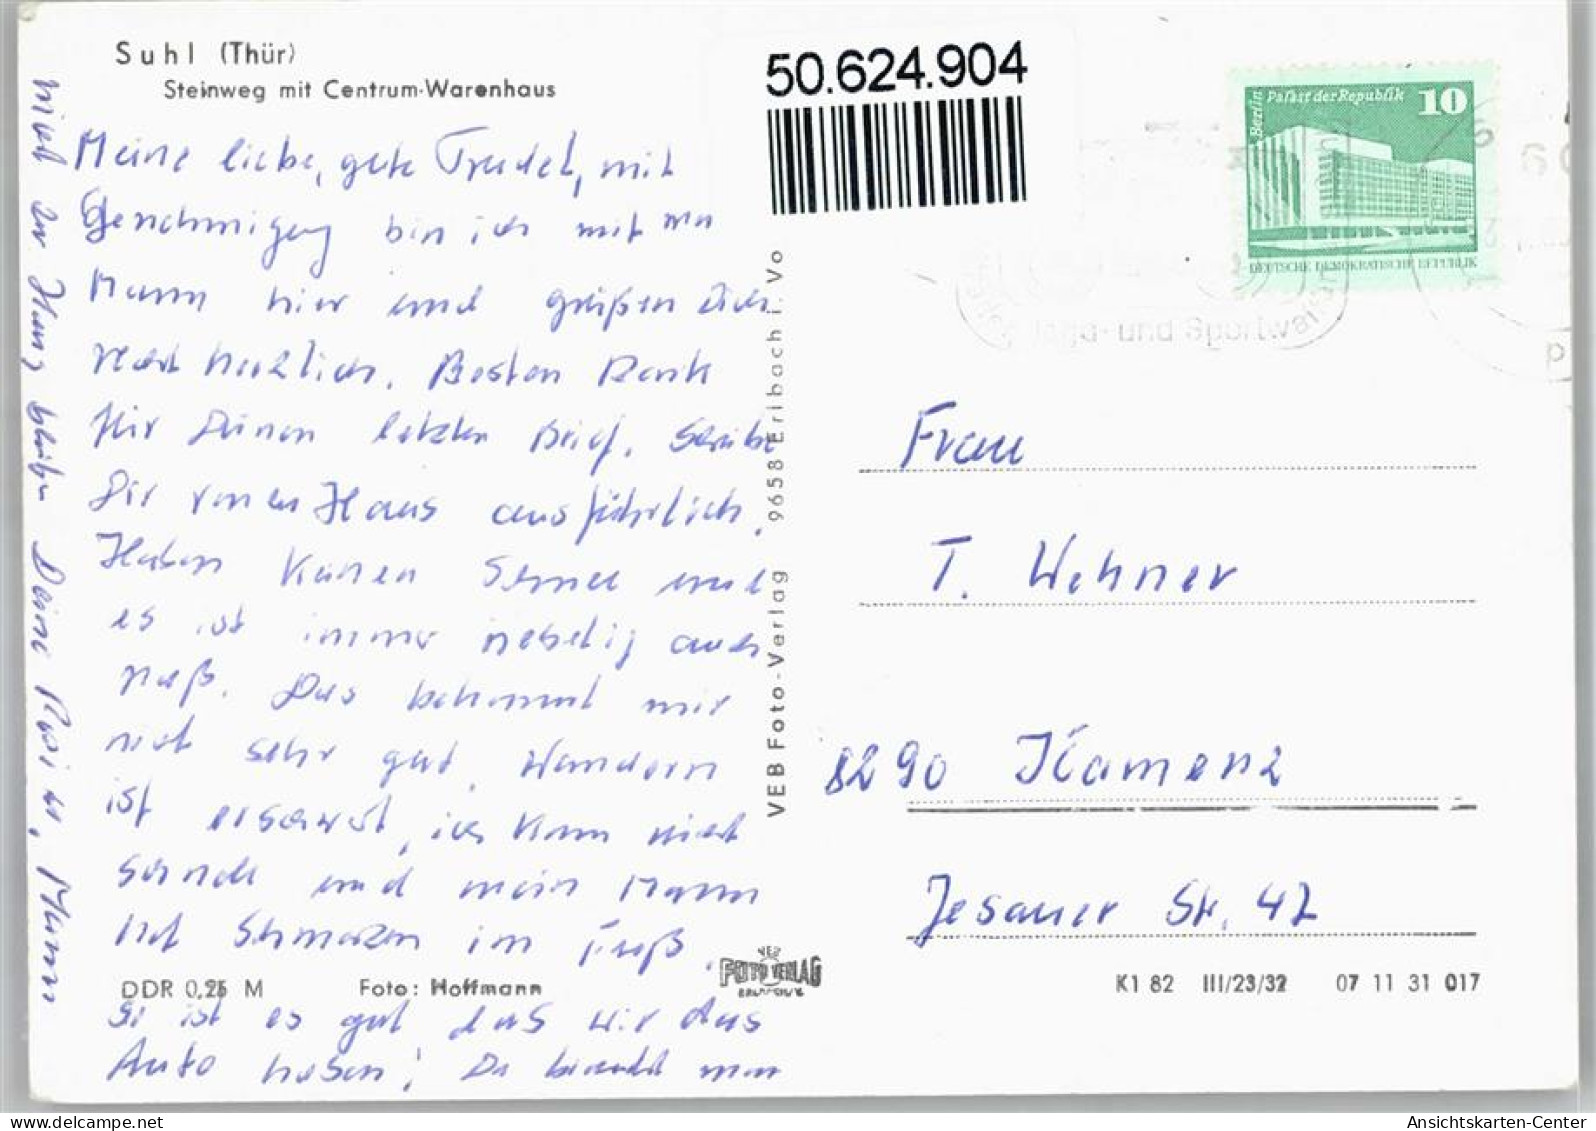 Suhl (Thür)
Steinweg mit Centrum-Warenhaus
50.624.904
Berlin Palast der Republik 10
DEUTSCHE DEMOKRATISCHE REPUBLIK
Jagd- und Sportwaffen
Meine liebe, gute Trudel, mit
Genehmigung bin ich mit
Mann hier und grüßen Dich
recht herzlich. Besten Dank
für Deinen letzten Brief. Schreibe
Dir von Haus ausführlich.
Haben keinen Schnee und
es ist immer nebelig auch
naß. Das bekommt mir
nicht sehr gut. Wandern
ist erschwert, ich kann nicht
schnell und mein Mann
hat Schmerzen im Fuß.
So ist es gut das wir das
Auto haben! Da braucht man
nicht zu Hause bleiben Deine Rosi u. Mann
VEB Foto-Verlag 9658 Erlbach i. Vo
Frau
T. Wehner
8290 Kamenz
Jesauer Str. 47
DDR 0,25 M Foto: Hoffmann
VEB
FOTO VERLAG
K1 82 III/23/32 07 11 31 017
Ansichtskarten-Center